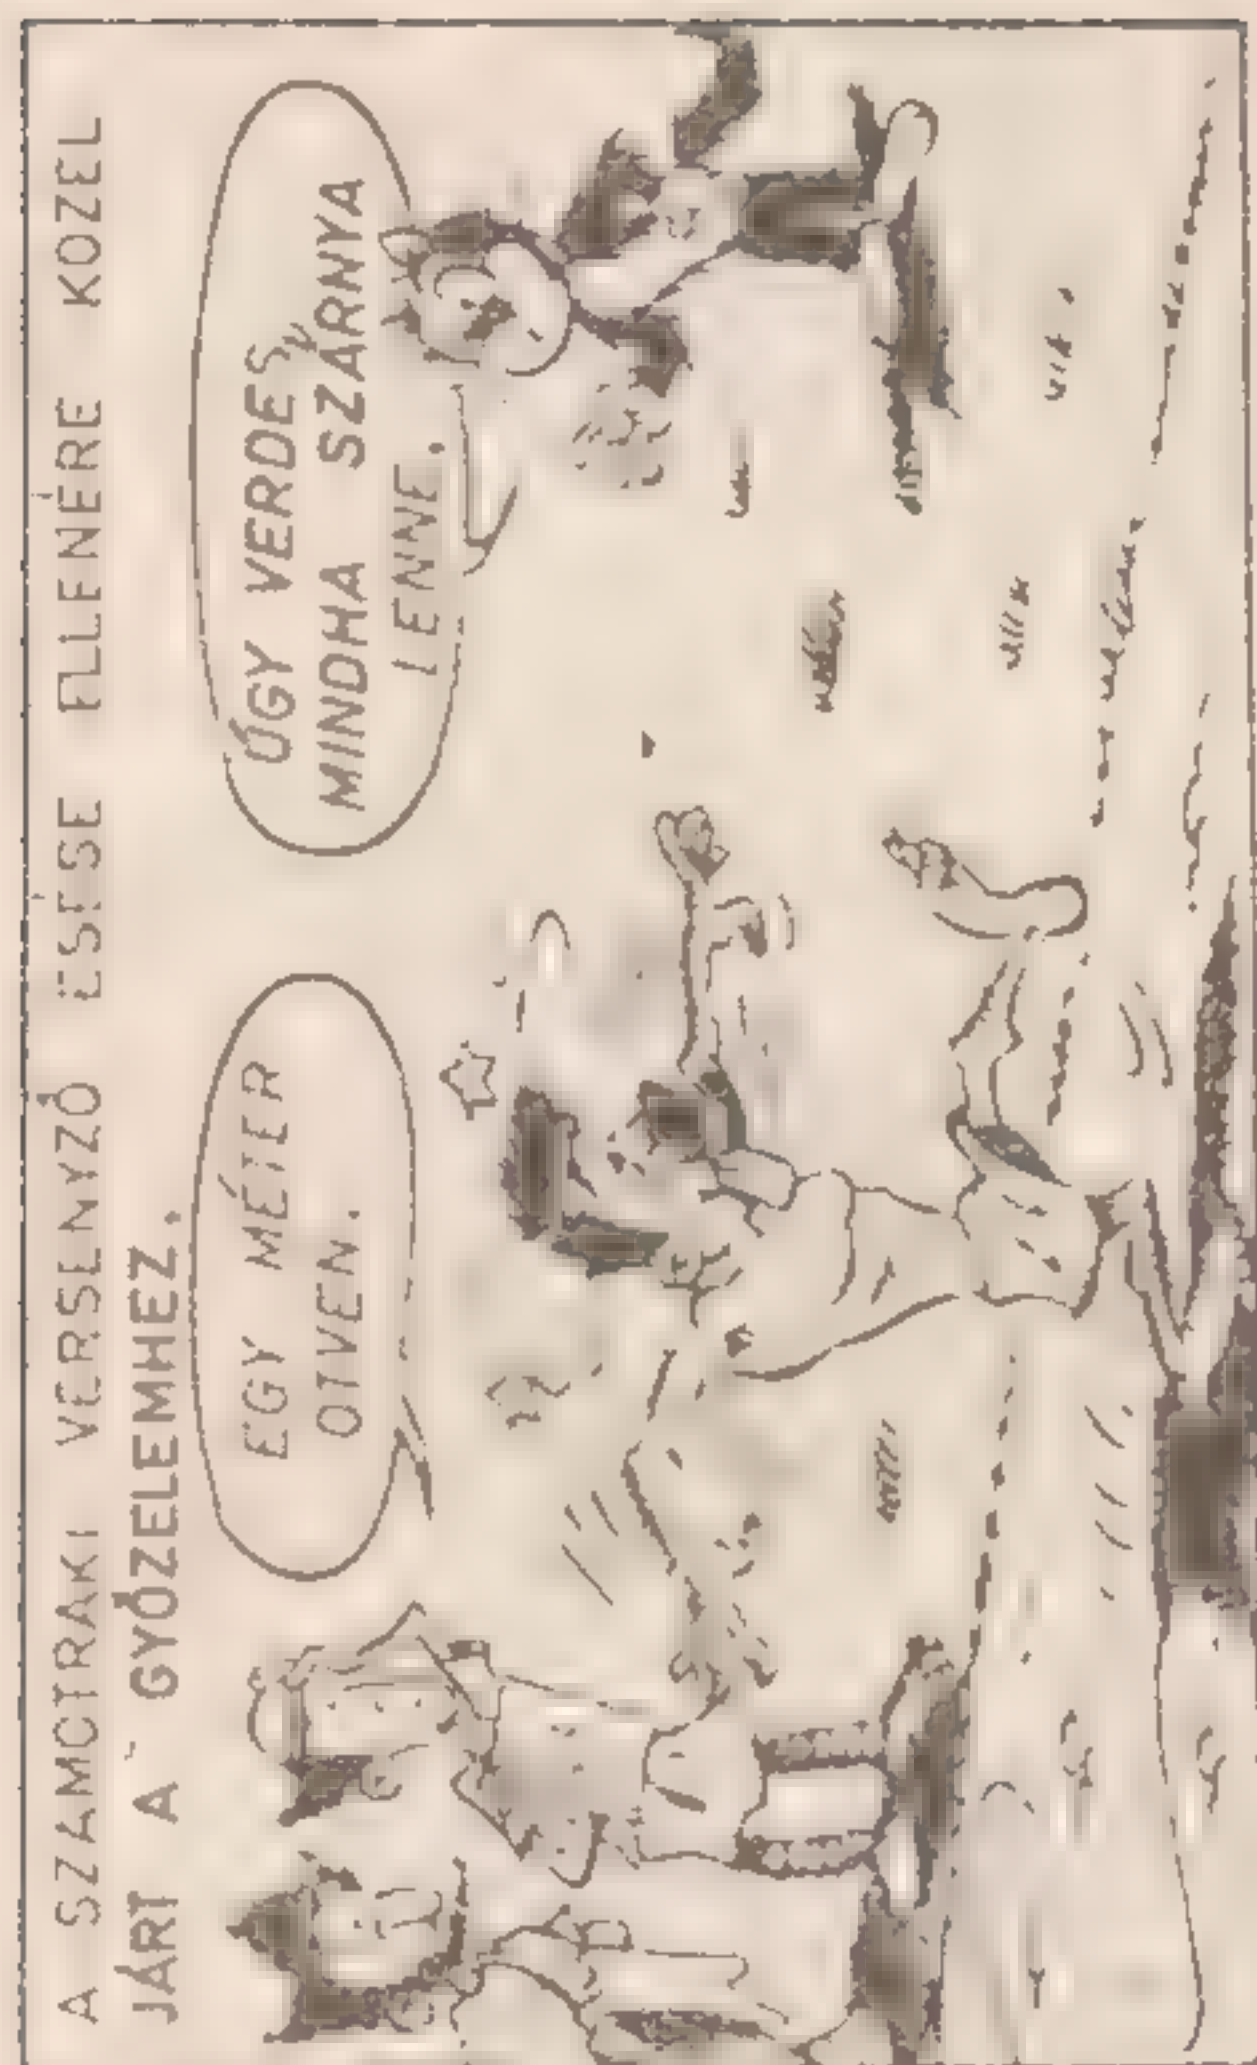 A SZAMOTRAKI VERSENYZŐ ESÉSE ELLENÉRE KOZEL
JÁRT A GYŐZELEMHEZ.
EGY MÉTER
OTVEN.
ÚGY VERDES,
MINDHA SZÁRNYA
LENNE.